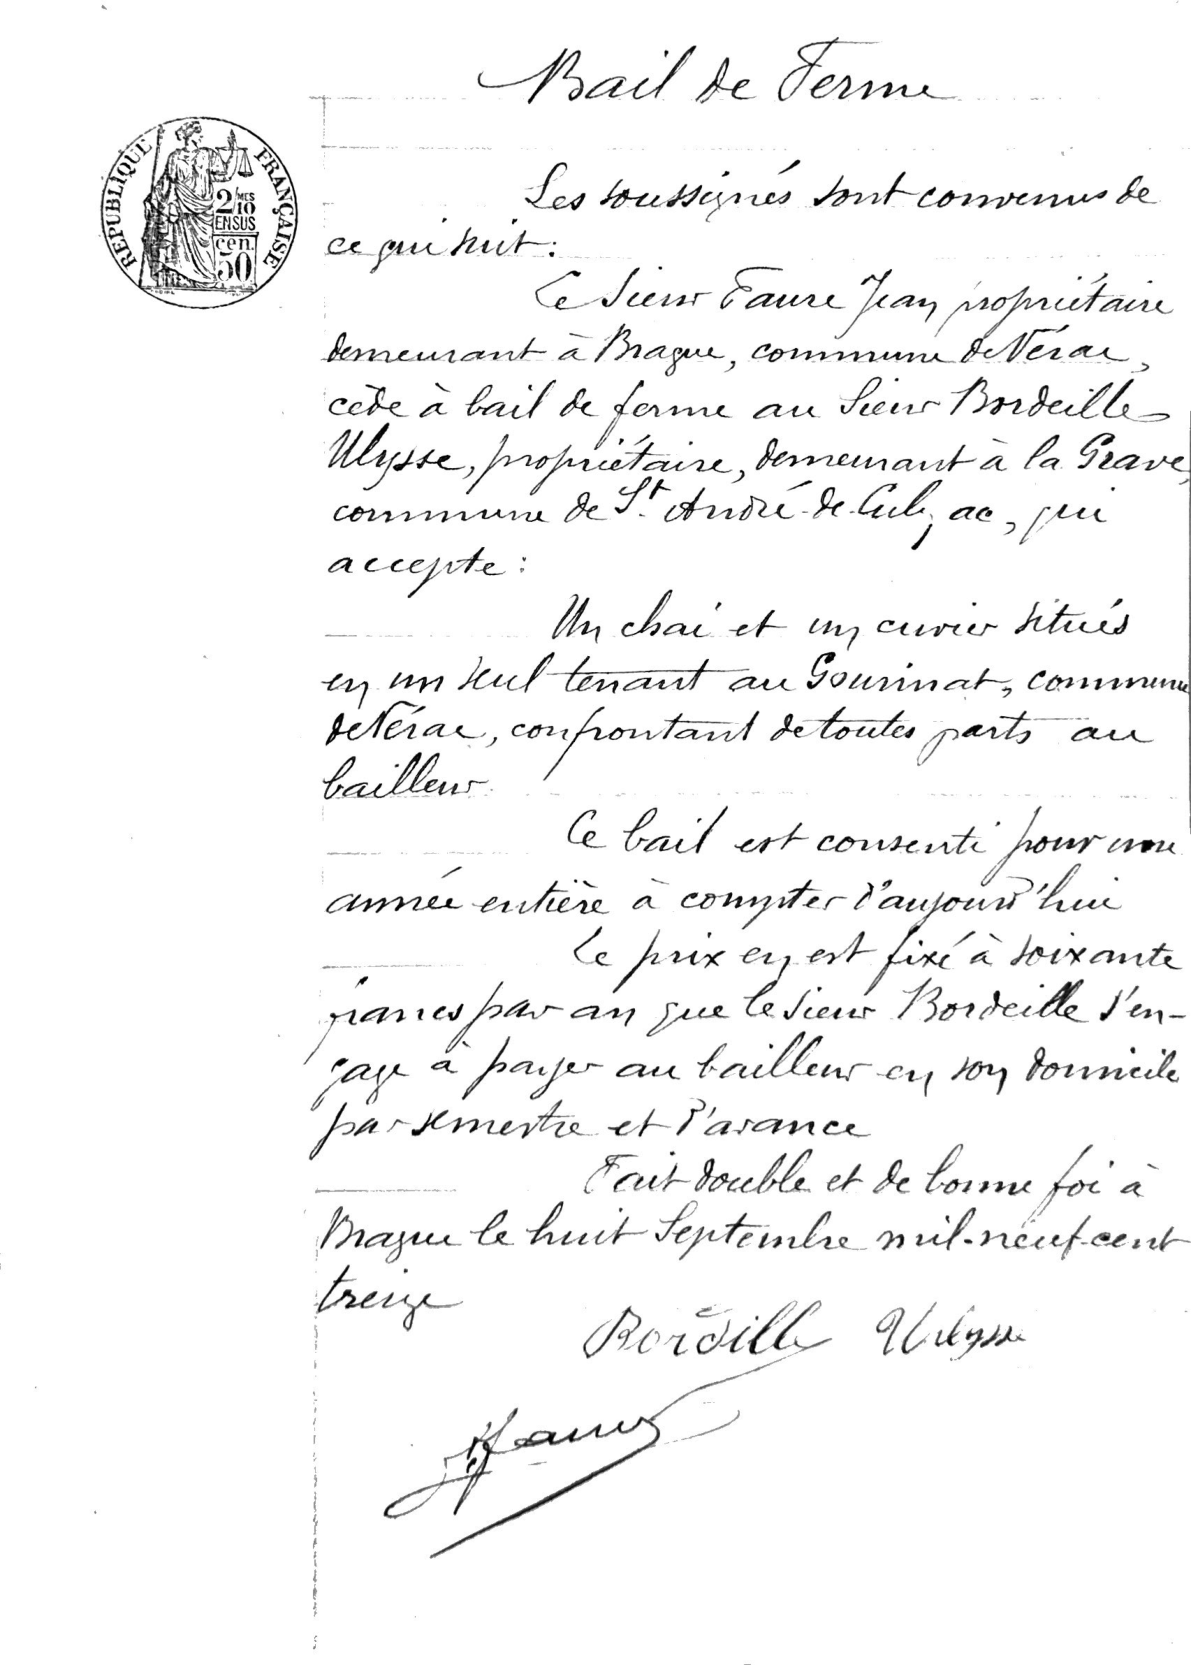 Bail de Ferme
RÉPUBLIQUE FRANÇAISE
2/10 MES
EN SUS
50 cen.
Les soussignés sont convenus de
ce qui suit :
Le Sieur Faure Jean propriétaire
demeurant à Brague, commune de Vérac,
cède à bail de ferme au Sieur Bordeille
Ulysse, propriétaire, demeurant à la Grave,
commune de St. André-de-Cubzac, qui
accepte :
Un chai et un cuvier situés
en un seul tenant au Gourinat, commune
de Vérac, confrontant de toutes parts au
bailleur
Ce bail est consenti pour une
année entière à compter d'aujourd'hui
Le prix en est fixé à soixante
francs par an que le Sieur Bordeille s'en-
gage à payer au bailleur en son domicile
par semestre et d'avance
Fait double et de bonne foi à
Brague le huit Septembre mil-neuf-cent
treize
Bordeille Ulysse
JFaure